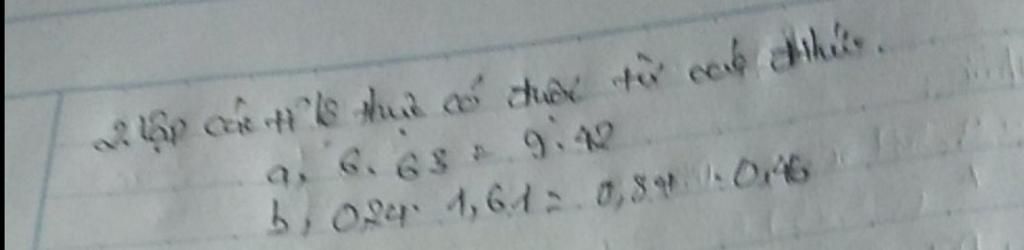 2. lập các tỉ lệ thức có được từ các đẳng thức.
a, 6. 63 = 9. 42
b, 0,24. 1,61 = 0,84. 0,46